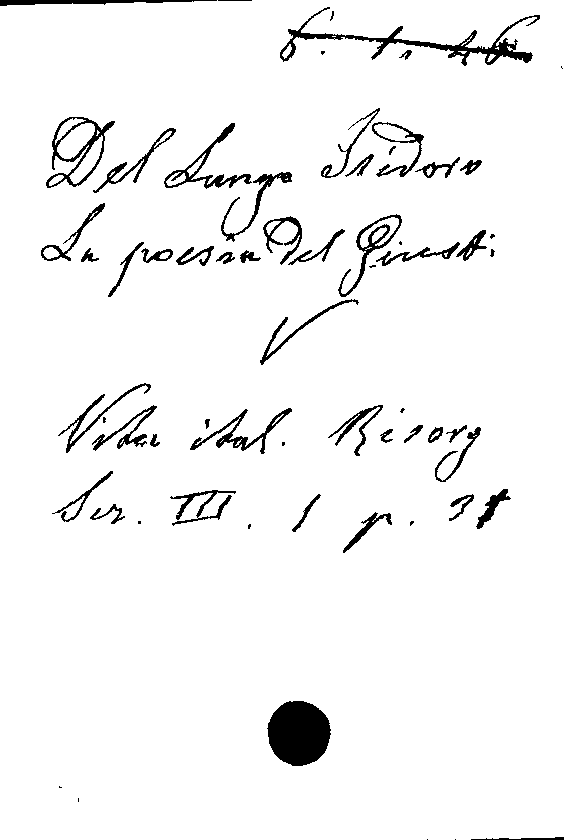 6. 1. 46
Del Lungo Isidoro
La poesia del Giusti
V
Vita ital. Risorg
Ser. III. 1 p.